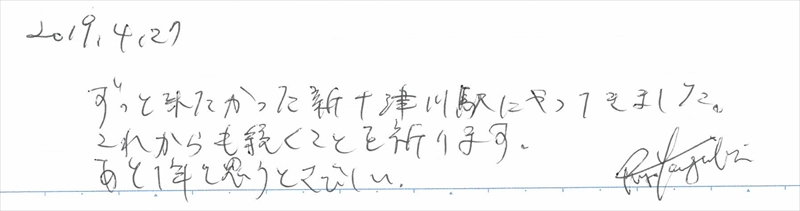 2019.4.27
ずっと来たかった新十津川駅にやってきました。
これからも続くことを祈ります。
あと1年と思うとさびしい.